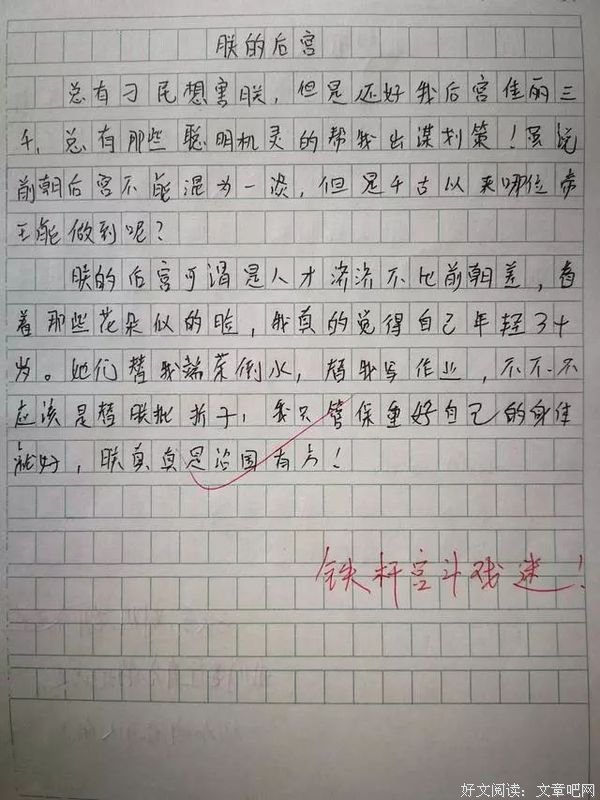 朕的后宫
总有刁民想害朕，但是还好我后宫佳丽三
千，总有那些聪明机灵的帮我出谋划策！虽说
前朝后宫不能混为一谈，但是千古以来哪位帝
王能做到呢？
朕的后宫可谓是人才济济不比前朝差，看
着那些花朵似的脸，我真的觉得自己年轻了30
岁。她们替我端茶倒水，替我写作业，不不不
应该是替朕批折子，我只管保重好自己的身体
就好，朕真真是治国有方！
铁杆宫斗戏迷！
好文阅读：文章吧网